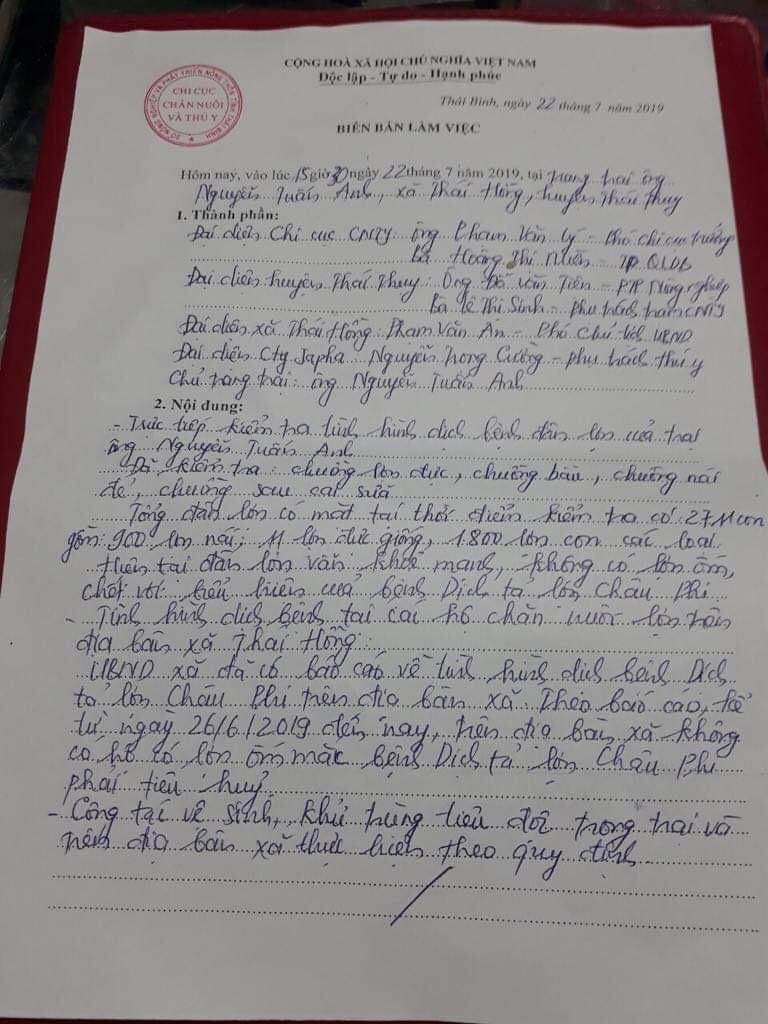 CỘNG HOÀ XÃ HỘI CHỦ NGHĨA VIỆT NAM
Độc lập - Tự do - Hạnh phúc
SỞ NÔNG NGHIỆP VÀ PHÁT TRIỂN NÔNG THÔN TỈNH THÁI BÌNH
CHI CỤC
CHĂN NUÔI
VÀ THÚ Y
Thái Bình, ngày 22 tháng 7 năm 2019
BIÊN BẢN LÀM VIỆC
Hôm nay, vào lúc 15 giờ 30 ngày 22 tháng 7 năm 2019, tại trang trại ông
Nguyễn Tuấn Anh, xã Thái Hồng, huyện Thái Thụy
1. Thành phần:
Đại diện Chi cục CNTY: ông Phạm Văn Lý - Phó chi cục trưởng
Bà Hoàng Thị Nhiên - TP QLDB
Đại diện huyện Thái Thụy: Ông Đỗ Văn Tiên - PTP Nông nghiệp
Bà Lê Thị Sinh - Phụ trách trạm CNTY
Đại diện xã Thái Hồng: Phạm Văn An - Phó Chủ tịch UBND
Đại diện Cty Japha: Nguyễn Trọng Cường - phụ trách thú y
Chủ trang trại: ông Nguyễn Tuấn Anh
2. Nội dung:
- Trực tiếp kiểm tra tình hình dịch bệnh đàn lợn của trại
ông Nguyễn Tuấn Anh
Đã kiểm tra: chuồng lợn đực, chuồng bầu, chuồng nái
đẻ, chuồng sau cai sữa
Tổng đàn lợn có mặt tại thời điểm kiểm tra có: 2711 con
gồm: 900 lợn nái; 11 lợn đực giống, 1.800 lợn con các loại
Hiện tại đàn lợn vẫn khỏe mạnh, không có lợn ốm,
chết với biểu hiện của bệnh Dịch tả lợn Châu Phi
- Tình hình dịch bệnh tại các hộ chăn nuôi lợn trên
địa bàn xã Thái Hồng:
UBND xã đã có báo cáo về tình hình dịch bệnh Dịch
tả lợn Châu Phi trên địa bàn xã. Theo báo cáo, kể
từ ngày 26/6/2019 đến nay, trên địa bàn xã không
có hộ có lợn ốm mắc bệnh Dịch tả lợn Châu Phi
phải tiêu hủy
- Công tác vệ sinh, khử trùng tiêu độc trong trại và
trên địa bàn xã thực hiện theo quy định